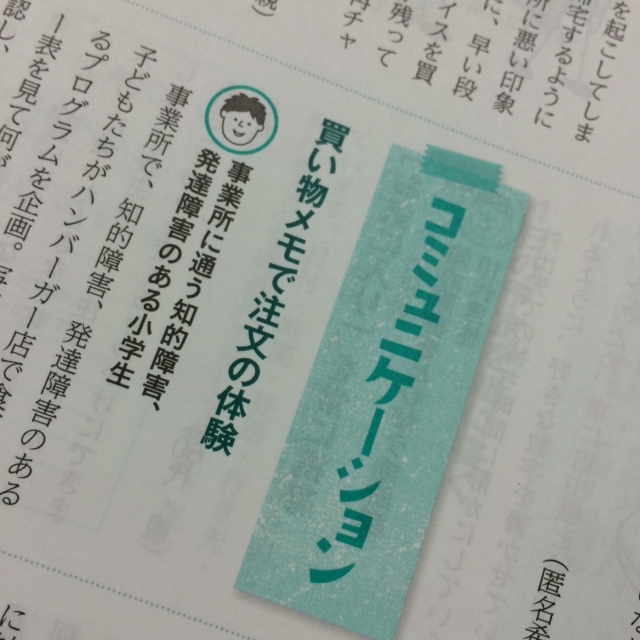 を起こしてしま
モするように
に悪い印象
に、早い段
イスを貰
残って
チャ
コミュニケーション
買い物メモで注文の体験
事業所に通う知的障害、
発達障害のある小学生
事業所で、知的障害、発達障害のある
子どもたちがハンバーガー店で
るプログラムを企画。
ー表を見て何が
認し、
(匿名
に